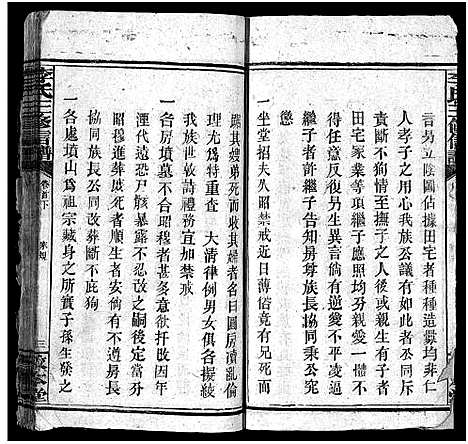 言另立陰圖佔據田宅者種種造釁均非仁
人孝子之用心我族公議有如此者公同斥
責斷不償至於撫子之人後或親生有子者
田宅家業等項繼子應照均分親愛一體
得任意反復男生異言倘有逆變不平凌逼
繼子者許繼子告知房尊族長協同秉公究
懲
一坐堂招夫久昭禁戒近日薄俗竟有兄死弟
雖其嫂弟死而收其婦者名曰圓房瀆亂倫
理尤為特重查 大清律例男女俱各擬絞
我族世敦詩禮務宜加禁戒
一各房墳墓不合昭穆者甚多意欲扦改因年
湮代遠恐尸骸暴露不忍改之嗣後定當分
昭穆進葬庶死者順生者安倘有不遵房長
協同族長公同改葬斷不庇狥
一各處墳山為祖宗藏身之所實子孫生發之
李氏三修信譜
卷首下
三